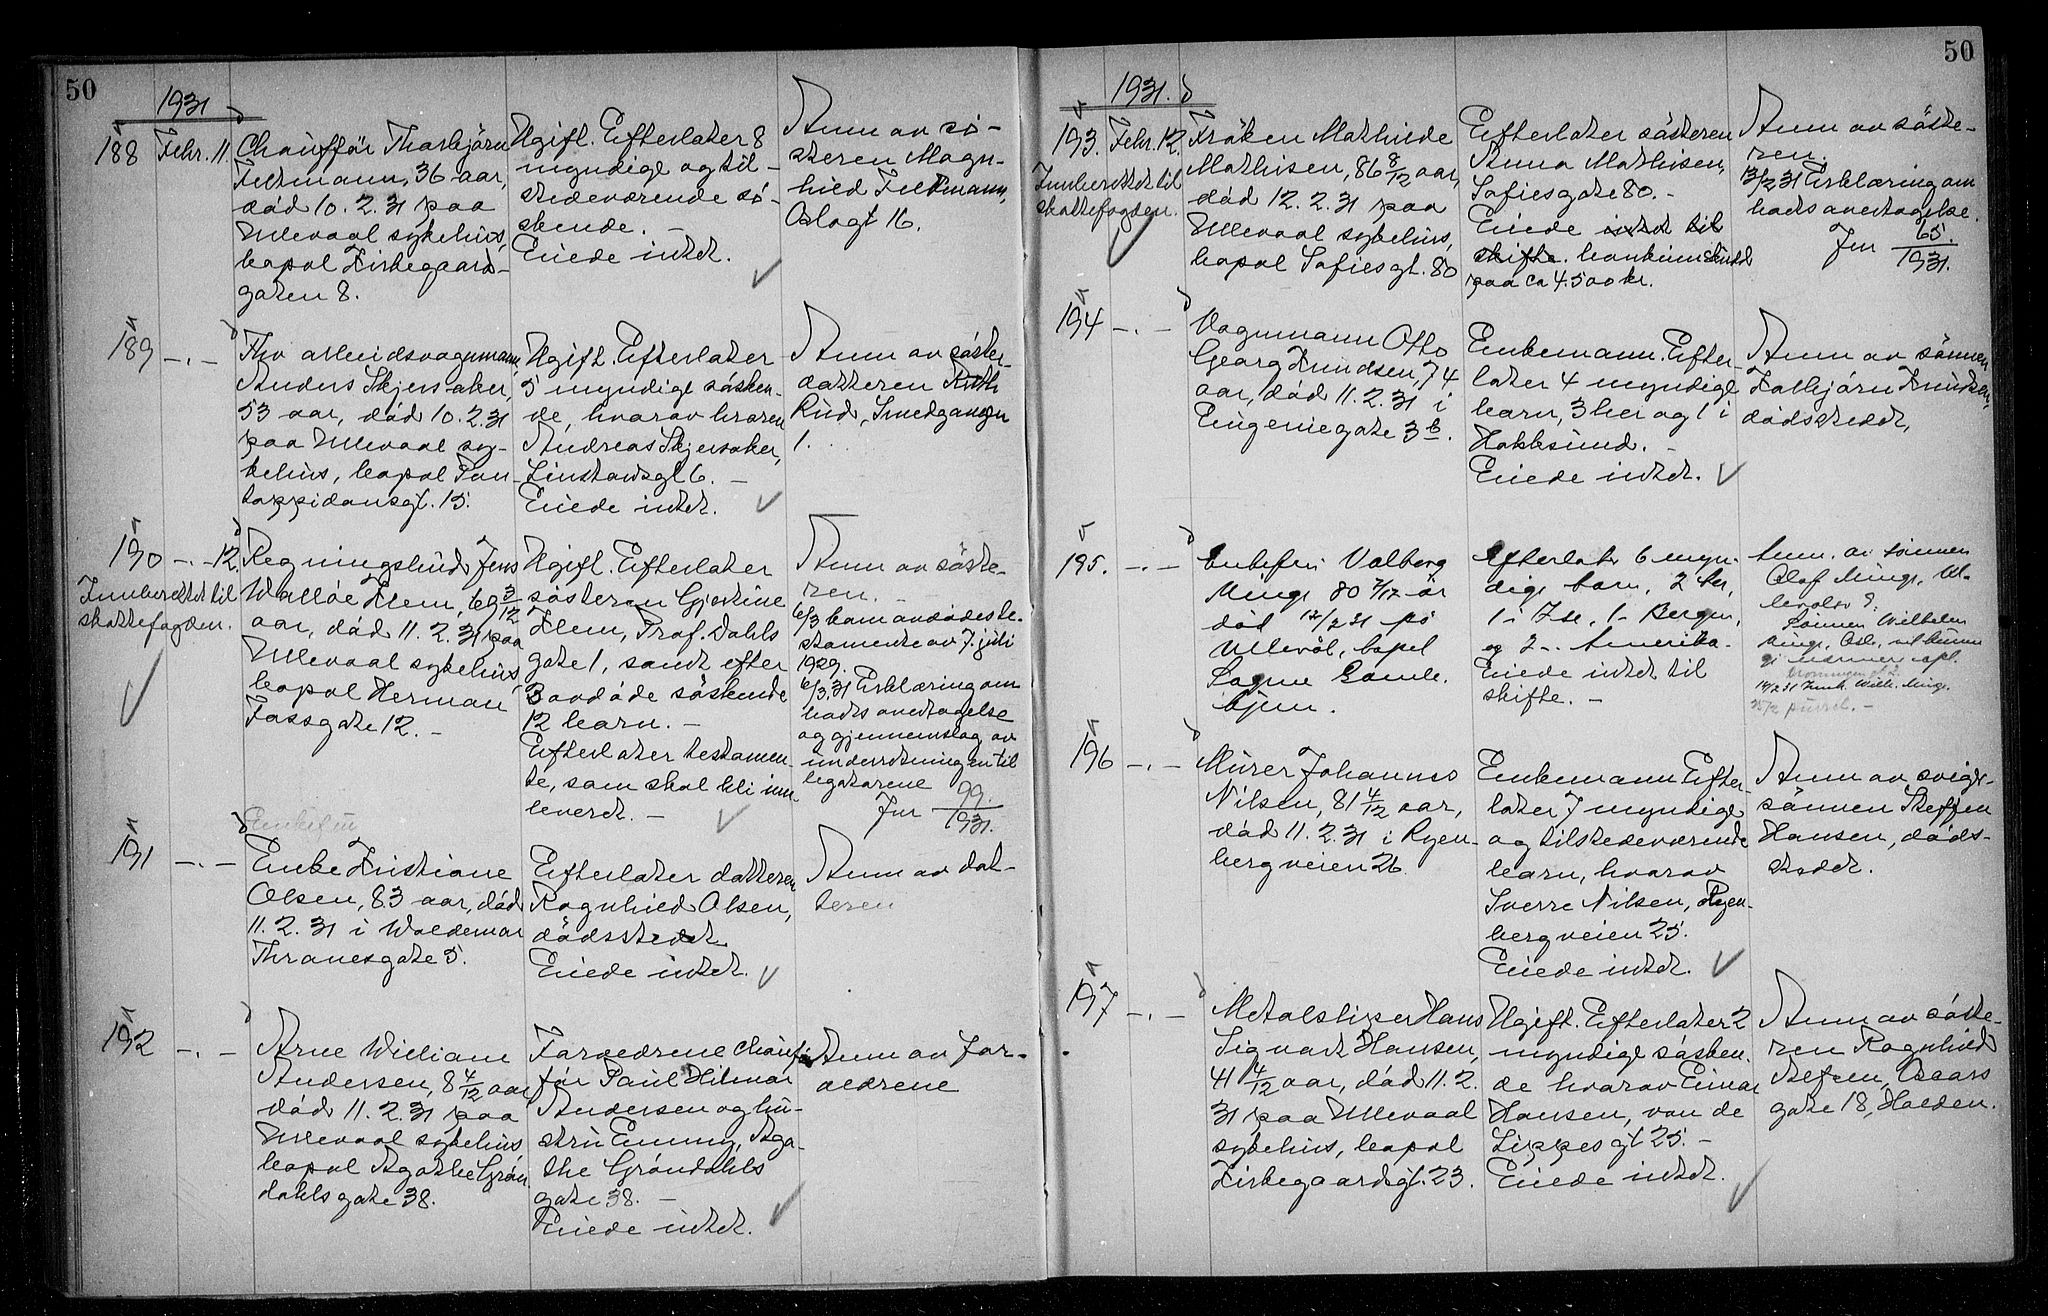 50
1931
188 Febr. 11.
Chaufför Thorbjörn
Feltmann, 36 aar,
död 10.2.31 paa
Ullevaal sykehus,
bopæl Kirkegaard-
gaten 8.
Ugift. Efterlater 8
myndige og til-
stedeværende sö-
skende. –
Eiede intet.
Anm av sö-
steren Magn-
hild Feltmann,
Oslogt 16.
189 –.–
Fhv arbeidsvognmann
Anders Skjersaker,
53 aar, död 10.2.31
paa Ullevaal sy-
kehus, bopæl Pon-
toppidansgt. 15.
Ugift. Efterlater
5 myndige sösken-
de, hvorav broren
Andreas Skjersaker,
Linstowsgt 6. –
Eiede intet.
Anm av söster-
datteren Ruth
Rud, Smedgangen
1.
190 –.– 12.
Innberettet til
skattefogden.
Regningsbud Jens
Walløe Flem, 69 3/12
aar, död 11.2.31 paa
Ullevaal sykehus,
bopæl Herman
Fossgate 12. –
Ugift. Efterlater
sösteren Gjertine
Flem, Prof. Dahls
gate 1, samt efter
3 avdöde söskende
12 barn. –
Efterlater testamen-
te, som skal bli inn-
leveret. –
Anm av söste-
ren. –
6/3 kom avdödes te-
stamente av 7. juli
1929.
6/3.31 Erklæring om
boets overtagelse
og gjennemslag av
underretningen til
legatarene
Jnr 99./1931.
191 –.–
Enkefru
Enke Kristiane
Olsen, 83 aar, död
11.2.31 i Waldemar
Thranesgate 5.
Efterlater datteren
Ragnhild Olsen,
dödsstedet.
Eiede intet.
Anm av dat-
teren
192 –.–
Arne William
Andersen, 8 4/12 aar,
död 11.2.31 paa
Ullevaal sykehus,
bopæl Agathe Grön
dahls gate 38.
Forældrene chauf-
för Paul Hilmar
Andersen og hu-
stru Emmy, Aga-
the Gröndahls
gate 38. –
Eiede intet.
Anm av for-
ældrene
50
1931.
193. Febr. 12.
Innberettet til
skattefogden.
Fröken Mathilde
Mathisen, 86 8/12 aar,
död 12.2.31 paa
Ullevaal sykehus,
bopæl Sofiesgt. 80
Efterlater sösteren
Anna Mathisen,
Sofiesgate 80. –
Eiede intet til
skifte. bankinnskudd
paa ca 4.500 kr.
Anm av söste-
ren.
13/2 31 Erklæring om
boets overtagelse.
Jnr 65./1931.
194 –.–
Vognmann Otto
Georg Knudsen, 74
aar, död 11.2.31 i
Eugeniegate 3 b.
Enkemann. Efter-
later 4 myndige
barn, 3 her og 1 i
Hokksund. –
Eiede intet.
Anm av sönnen
Torbjörn Knudsen,
dödsstedet.
195. –.–
Enkefru Valborg
Minge 80 7/12 år
död 12/2 31 på
Ullevål, bopel
Sogne Gamle-
hjem.
Efterlater 6 myn-
dige barn, 2 her,
1 i Ise, 1 - Bergen,
og 2 - Amerika.
Eiede intet til
skifte. –
Anm. av sönnen
Olaf Minge, Ul-
levålsv
Sönnen Wilhelm
Minge, Oslo, vil kunne
gi nærmere opl.
14/2 31 Innk. Wilh. Minge.
25/2 purret. –
196 –.–
Murer Johannes
Nilsen, 81 4/12 aar,
död 11.2.31 i Ryen-
bergveien 26.
Enkemann Efter-
later 7 myndige
og tilstedeværende
barn, hvorav
Sverre Nilsen, Ryen-
bergveien 25.
Eiede intet.
Anm av sviger-
sönnen Steffen
Hansen, döds-
stedet.
197 –.–
Metalsliper Hans
Sigvart Hansen,
41 4/12 aar, död 11.2.
31 paa Ullevaal
sykehus, bopæl
Kirkegaardsgt. 23.
Ugift. Efterlater 2
myndige sösken-
de hvorav Einar
Hansen, von de
Lippesgt 25. –
Eiede intet.
Anm av söste-
ren Ragnhild
Alfsen, Oscars
gate 18, Halden.